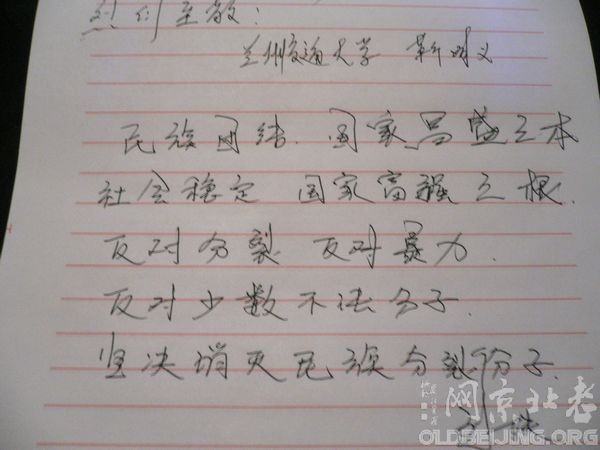 烈们至敬:
兰州交通大学 靳明义
民族团结. 国家昌盛之本
社会稳定 国家富强之根.
反对分裂 反对暴力.
反对少数不法分子.
坚决消灭民族分裂份子.
老北京网
OLDBEIJING.ORG